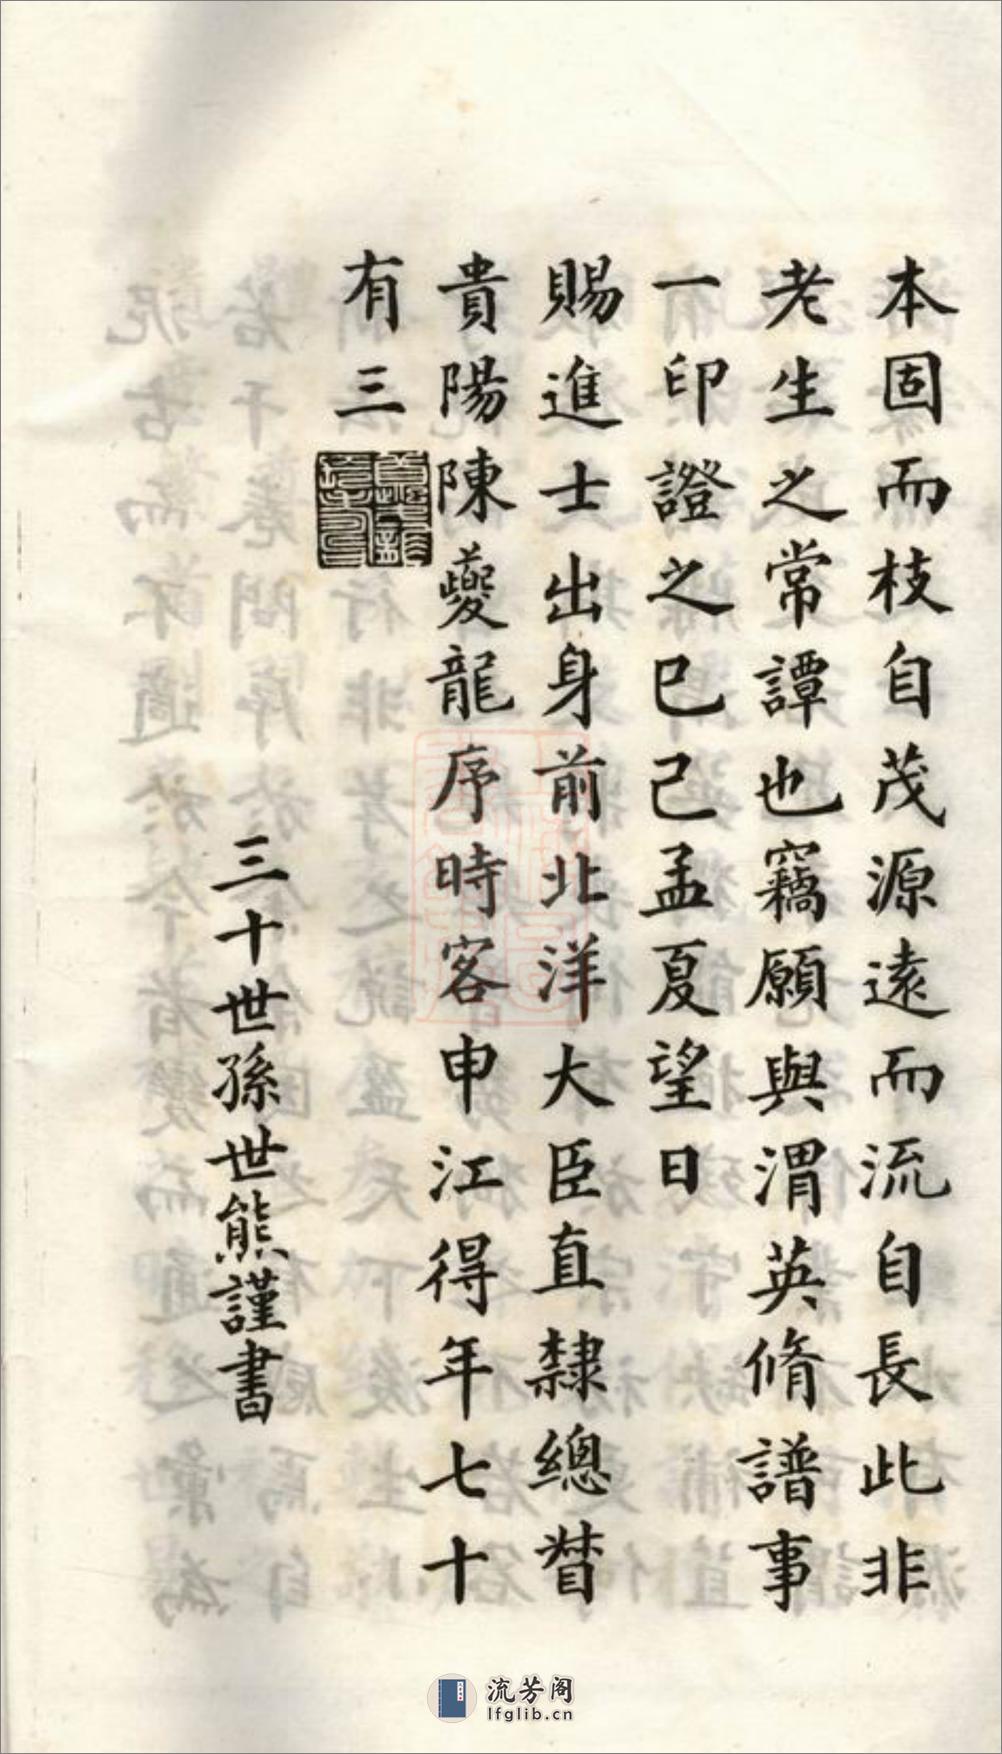 本固而枝自茂源遠而流自長此非
老生之常譚也竊願與渭英脩譜事
一印證之巳己孟夏望日
賜進士出身前北洋大臣直隸總督
貴陽陳夔龍序時客申江得年七十
有三
三十世孫世熊謹書
流芳阁
lfglib.cn